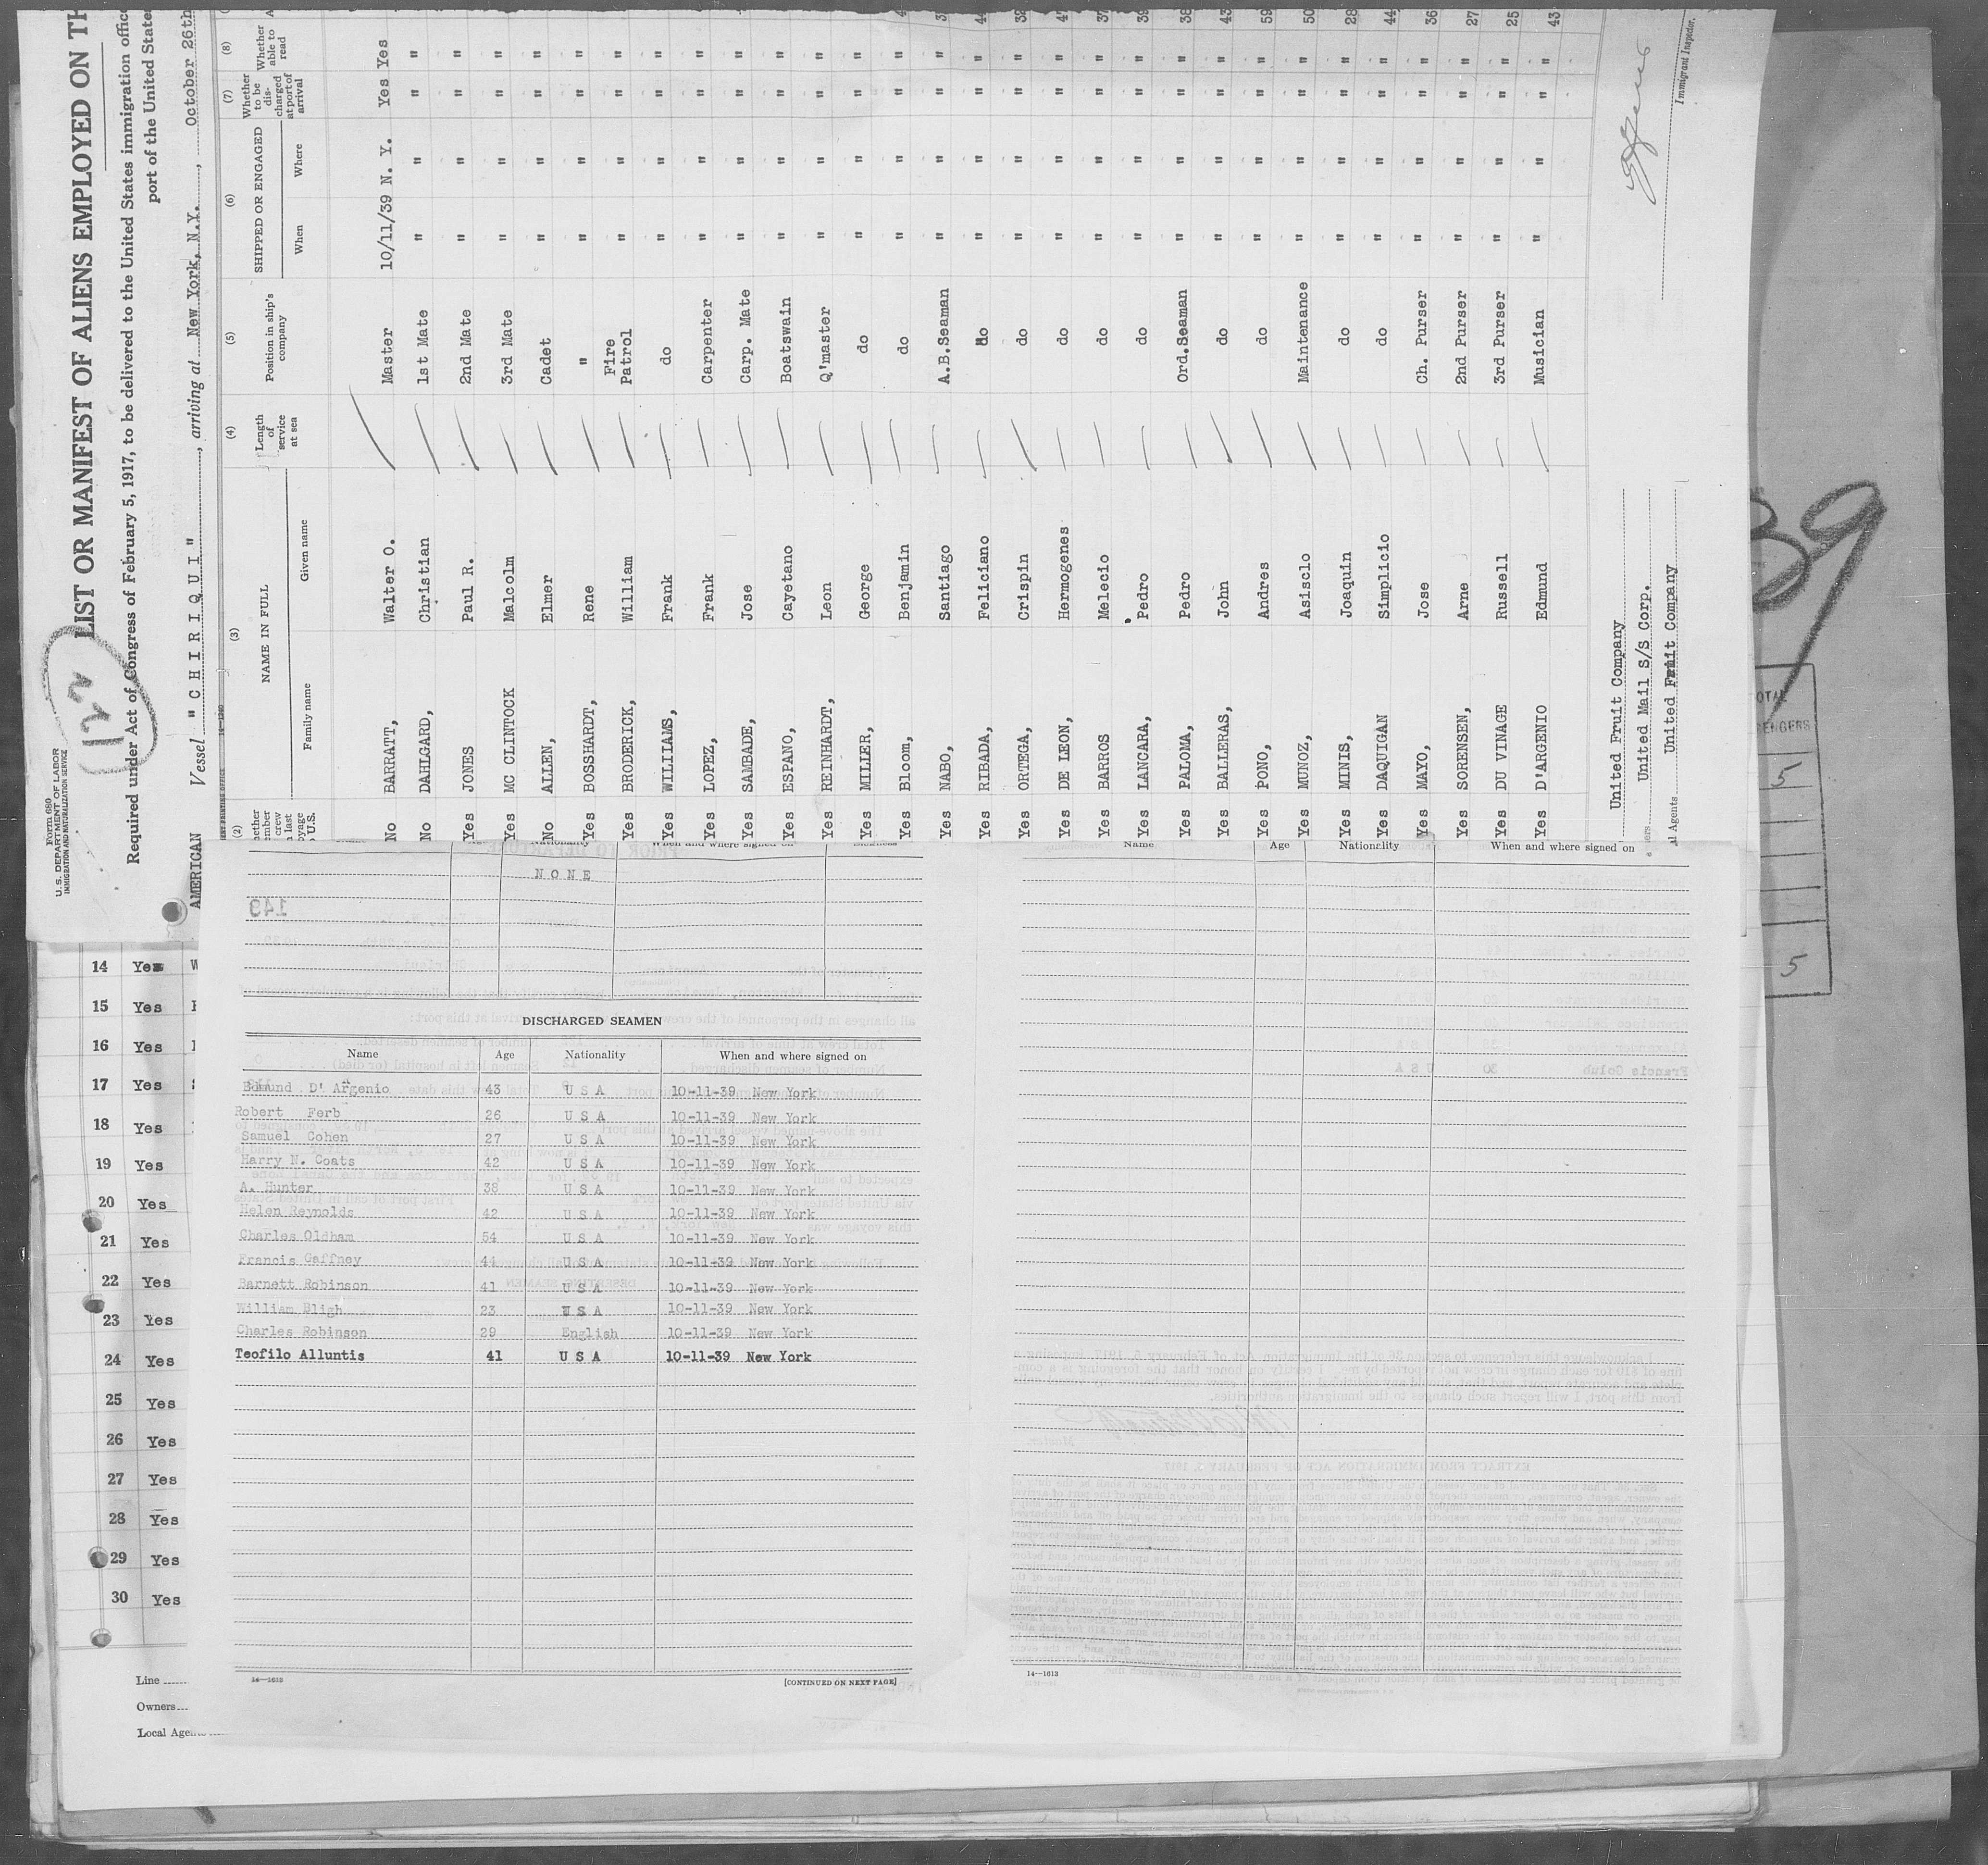 Form 680
U. S. DEPARTMENT OF LABOR
IMMIGRATION AND NATURALIZATION SERVICE
122
LIST OR MANIFEST OF ALIENS EMPLOYED ON TH
Required under Act of Congress of February 5, 1917, to be delivered to the United States immigration offic
port of the United State
AMERICAN Vessel "CHIRIQUI", arriving at New York, N.Y., October 26th
(2) (3) (4) (5) (6) (7) (8)
NAME IN FULL
Family name Given name
Length of service at sea
Position in ship's company
SHIPPED OR ENGAGED
When Where
Whether to be discharged at port of arrival
Whether able to read
No BARRATT, Walter O. Master 10/11/39 N. Y. Yes Yes
No DAHLGARD, Christian 1st Mate " " " "
Yes JONES Paul R. 2nd Mate " " " "
Yes MC CLINTOCK Malcolm 3rd Mate " " " "
No ALLEN, Elmer Cadet " " " "
Yes BOSSHARDT, Rene " " " " "
Yes BRODERICK, William Fire Patrol " " " "
Yes WILLIAMS, Frank do " " " "
Yes LOPEZ, Frank Carpenter " " " "
Yes SAMBADE, Jose Carp. Mate " " " "
Yes ESPANO, Cayetano Boatswain " " " "
Yes REINHARDT, Leon Q'master " " " "
Yes MILLER, George do " " " "
Yes Bloom, Benjamin do " " " "
Yes NABO, Santiago A.B.Seaman " " " "
Yes RIBADA, Feliciano do " " " " 44
Yes ORTEGA, Crispin do " " " " 32
Yes DE LEON, Hermogenes do " " " " 47
Yes BARROS Melecio do " " " " 37
Yes LANCARA, Pedro do " " " " 39
Yes PALOMA, Pedro Ord.Seaman " " " " 38
Yes BALLERAS, John do " " " " 43
Yes PONO, Andres do " " " " 59
Yes MUNOZ, Asisclo Maintenance " " " " 50
Yes MINIS, Joaquin do " " " " 28
Yes DAQUIGAN Simplicio do " " " " 44
Yes MAYO, Jose Ch. Purser " " " " 36
Yes SORENSEN, Arne 2nd Purser " " " " 27
Yes DU VINAGE Russell 3rd Purser " " " " 25
Yes D'ARGENIO Edmund Musician " " " " 43
United Fruit Company
United Mail S/S Corp.
l Agents United Fruit Company
Immigrant Inspector.
39
5
5
Nationality When and where signed on
NONE
DISCHARGED SEAMEN
Name Age Nationality When and where signed on
Edmund D'Argenio 43 U S A 10-11-39 New York
Robert Ferb 26 U S A 10-11-39 New York
Samuel Cohen 27 U S A 10-11-39 New York
Harry N. Coats 42 U S A 10-11-39 New York
A. Hunter 38 U S A 10-11-39 New York
Helen Reynolds 42 U S A 10-11-39 New York
Charles Oldham 54 U S A 10-11-39 New York
Francis Gaffney 44 U S A 10-11-39 New York
Barnett Robinson 41 U S A 10-11-39 New York
William Bligh 23 U S A 10-11-39 New York
Charles Robinson 29 English 10-11-39 New York
Teofilo Alluntis 41 U S A 10-11-39 New York
14—1613 [CONTINUED ON NEXT PAGE]
Name Age Nationality When and where signed on
14—1613
14 Yes
15 Yes
16 Yes
17 Yes
18 Yes
19 Yes
20 Yes
21 Yes
22 Yes
23 Yes
24 Yes
25 Yes
26 Yes
27 Yes
28 Yes
29 Yes
30 Yes
Line
Owners
Local Agen